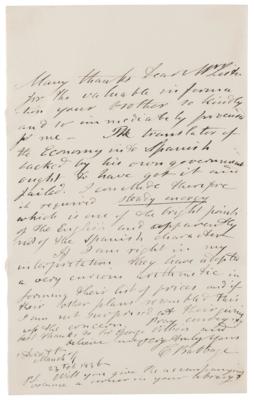 Many thanks Dear Mr
for the valuable informa
tion your brother so kindly
and so immediately procured
for me — The translator of
the Economy into Spanish
backed by his own government
ought to have got it and
failed. I conclude therefore
it required steady energy
which is one of the bright points
of the English and apparently
not of the Spanish character
If I am right in my
interpretation they have adopted
a very curious arithmetic in
forming their list of prices and if
their other plans resembled this
I am not surprised at their giving
up the concern. Pray
best thanks to Sir George and
believe me very truly yours
C Babbage
Dorset St
Manch Sq
23 Feb 1836
PS. Will you give the accompanying
volume a corner in your library?